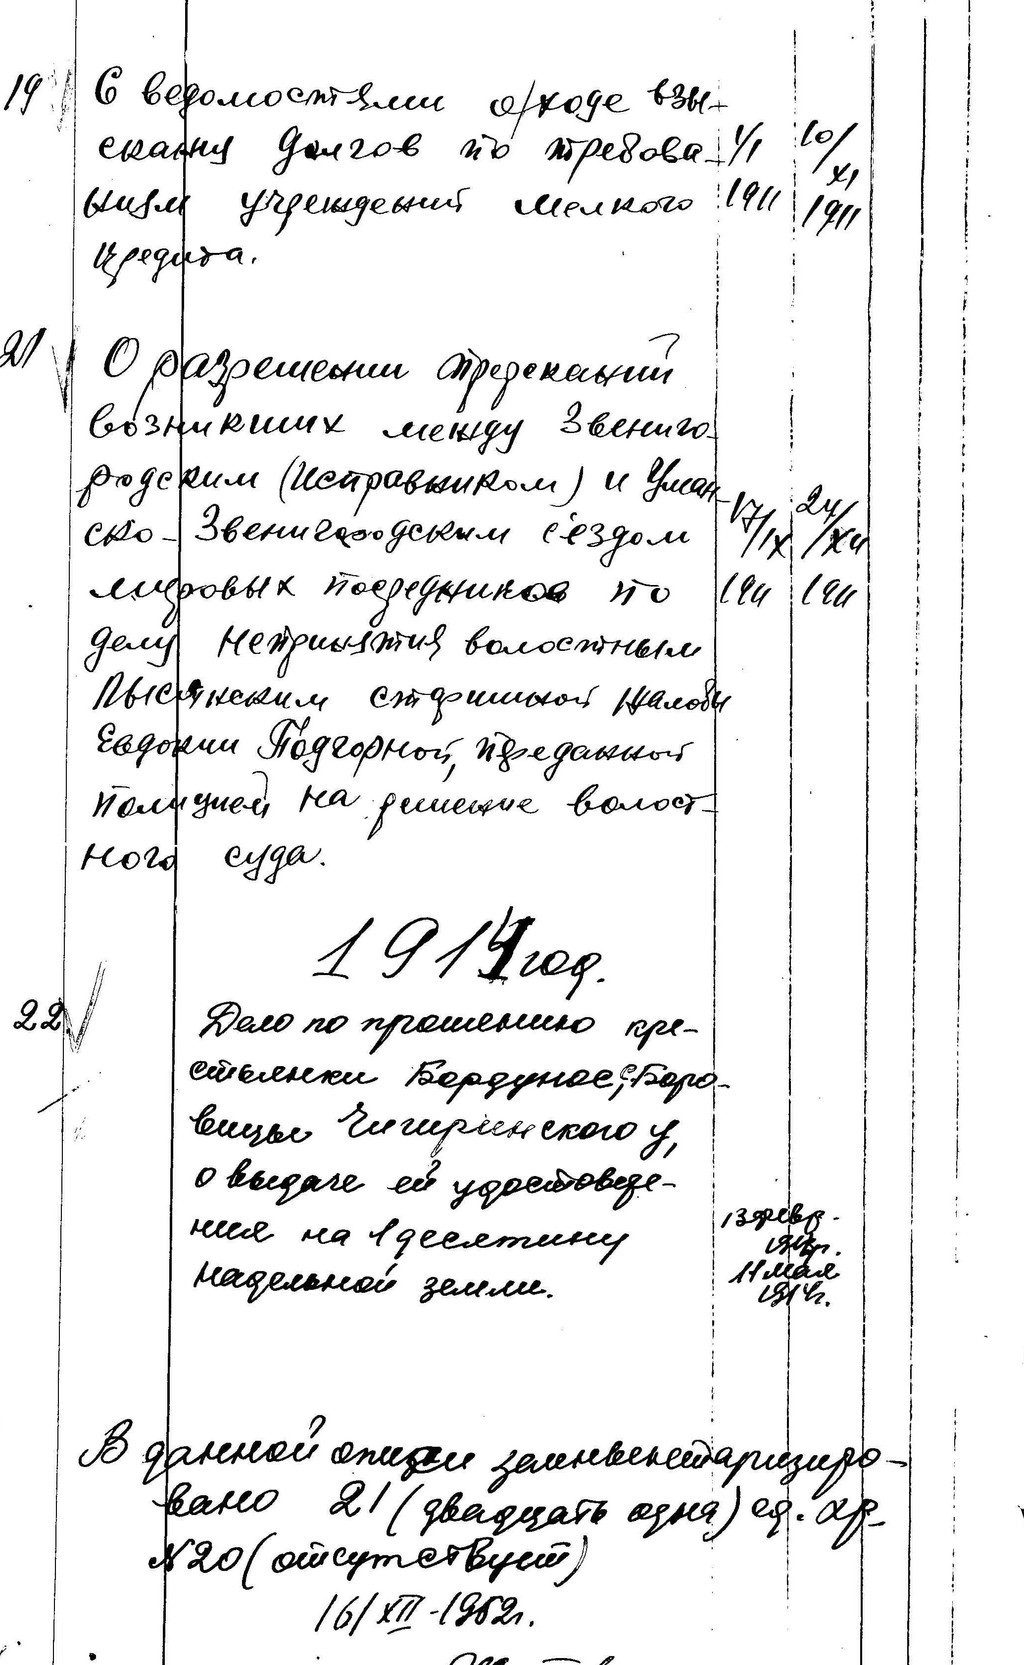 19 С ведомостями о ходе взы-
скания долгов по требова- 1/I 10/XI
ниям учреждений мелкого 1911 1911
кредита.
21 О разрешении пререканий
возникших между Звениго-
родским (Исправником) и Уман-
ско-Звенигородским сьездом 17/IX 24/XII
мировых посредников по 1911 1911
делу непринятия волостным
Лысянским старшиной жалобы
Евдокии Подгорной, переданной
полицией на решение волост-
ного суда.
1914 год.
22 Дело по прошению кре-
стьянки Бордунос, с. Боро-
вицы Чигиринского у,
о выдаче ей удостовере-
ния на 1 десятину 13 февр.
1914г.
надельной земли. 11 мая
1914г.
В данной описи
вано 21 (двадцать одна) ед. хр.
N 20 (отсутствует)
16/XII-1952г.